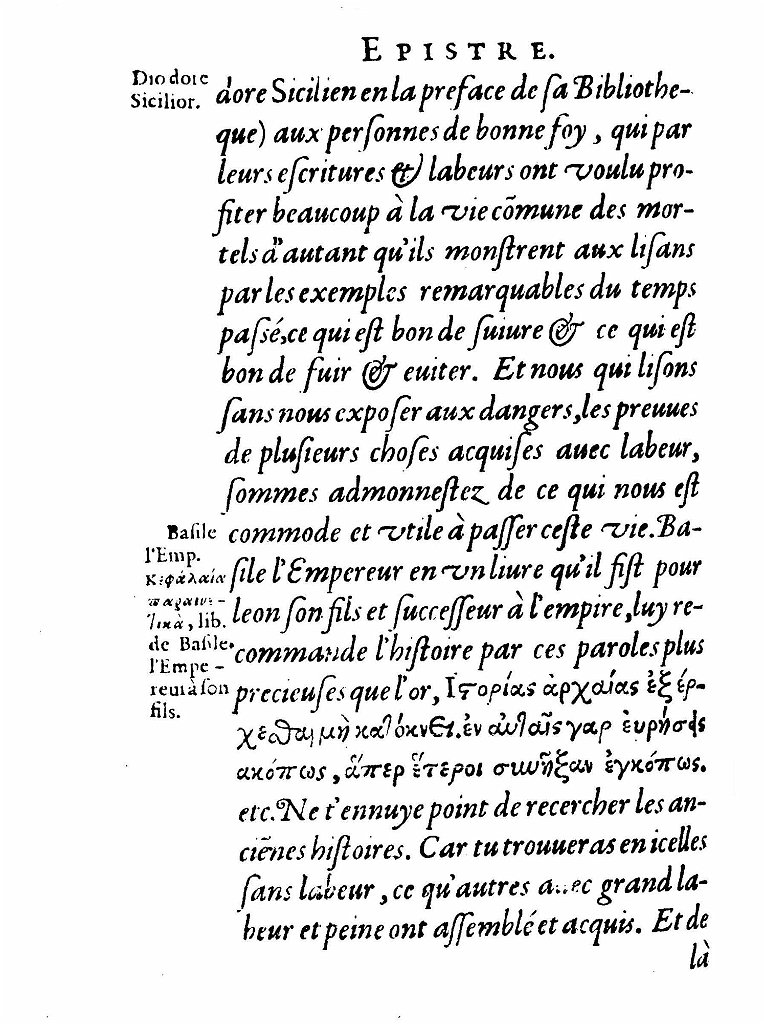 EPISTRE.
Diodore
Sicilior.
dore Sicilien en la preface de ſa Bibliothe-
que) aux perſonnes de bonne foy, qui par
leurs eſcritures & labeurs ont voulu pro-
fiter beaucoup à la vie cōmune des mor-
tels d'autant qu'ils monſtrent aux liſans
par les exemples remarquables du temps
paſſé, ce qui eſt bon de ſuiure & ce qui eſt
bon de fuir & euiter. Et nous qui liſons
ſans nous expoſer aux dangers, les preuues
de pluſieurs choſes acquiſes auec labeur,
ſommes admonneſtez de ce qui nous eſt
commode et vtile à paſſer ceſte vie. Ba-
ſile l'Empereur en vn liure qu'il fiſt pour
leon ſon fils et ſucceſſeur à l'empire, luy re-
commande l'hiſtoire par ces paroles plus
precieuſes que l'or, Ιστορίας ἀρχαίας ἐξέρ-
χεσθαι μὴ κατόκνει. ἐν αὐταῖς γαρ ἑυρήσεις
ακόπως, ἅπερ ἕτεροι συνῆξαν ἐγκόπως.
etc. Ne t'ennuye point de recercher les an-
ciēnes hiſtoires. Car tu trouueras en icelles
ſans labeur, ce qu'autres auec grand la-
beur et peine ont aſſemblé et acquis. Et de
là
Baſile
l'Emp.
κεφάλαια
lib.
de Baſile
l'Empe-
reur à ſon
fils.